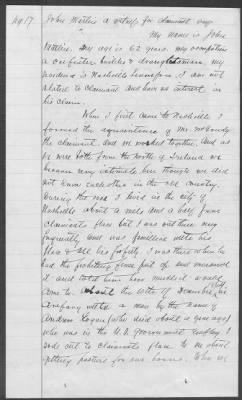 My 17. John Wattie a witness for claimant says
My name is John
Wattie. My age is 62 years. my occupation
a carpenter builder & draughtsman. my
residence is Nashville Tennessee. I am not
related to claimant and have no interest in
his claim.
When I first came to Nashville I
formed the acquaintance of Mr.
the claimant, and we worked together. And as
we were both from the North of Ireland we
became very intimate, but though we did
not know each other in the old country.
During the war I lived in the city of
Nashville about a mile and a half from
claimants place but I was out there very
frequently and was familiar with his
place & all his property. I was there when he
had the
and told him how much it would
come to. About the of December
company with a man by the name of
Andrew Logan (who died about a year ago)
who was in the U.S. government employ I
rode out to claimants place to see about
getting pasture for our horses. When we